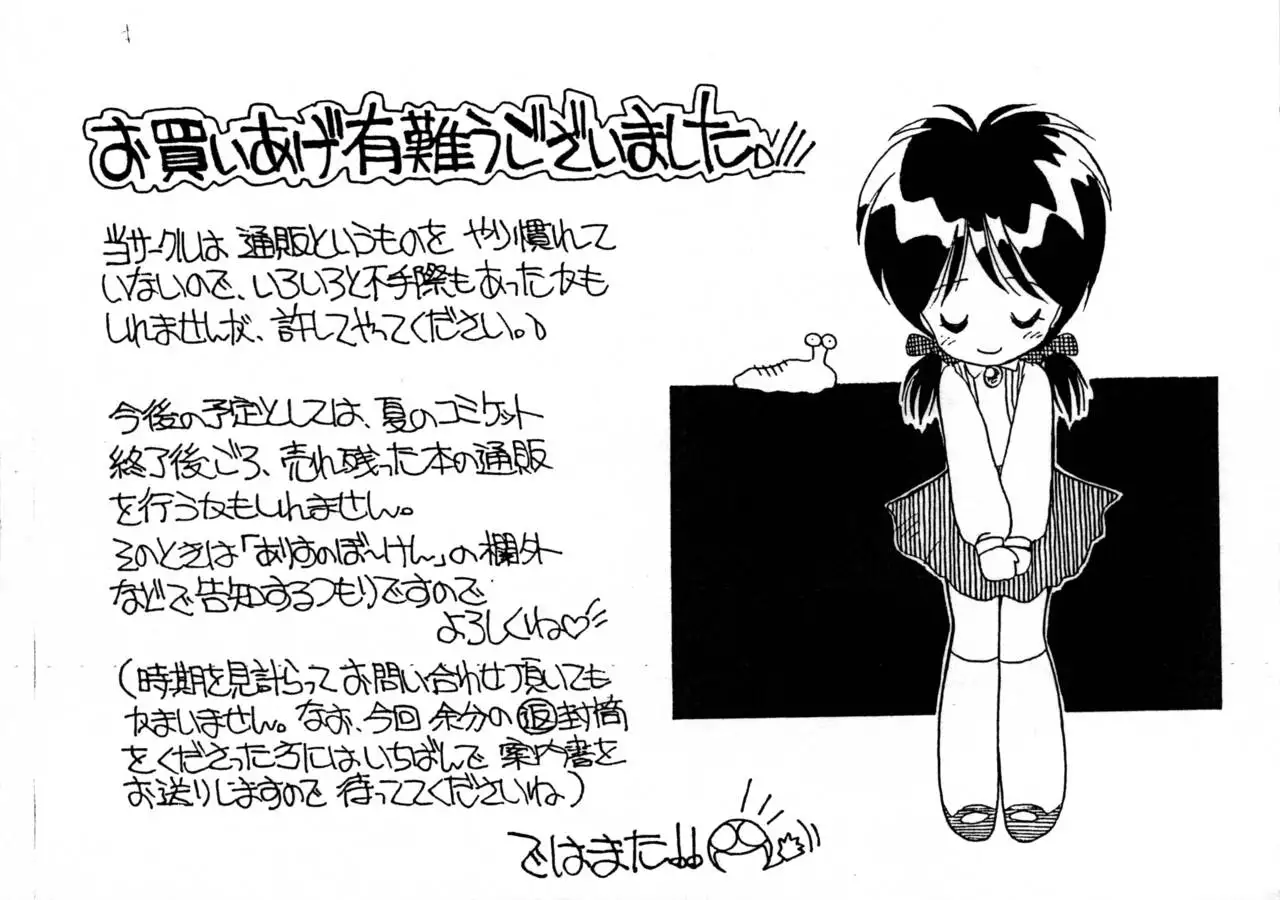 お買いあげ有難うございました。
当サークルは、通販というものを やり慣れて
いないので、いろいろと不手際もあったかも
しれませんが、許してやってください。
今後の予定としては、夏のコミケット
終了後ごろ、売れ残った本の通販
を行うかもしれません。
そのときは「ありすのぼーけん」の欄外
などで告知するつもりですので
よろしくね♡
(時期を見計らって お問い合わせ頂いても
かまいません。なお、今回 余分の㊤封筒
をくださった方にはいちばんで 案内書を
お送りしますので 待っててくださいね)
ではまた!!